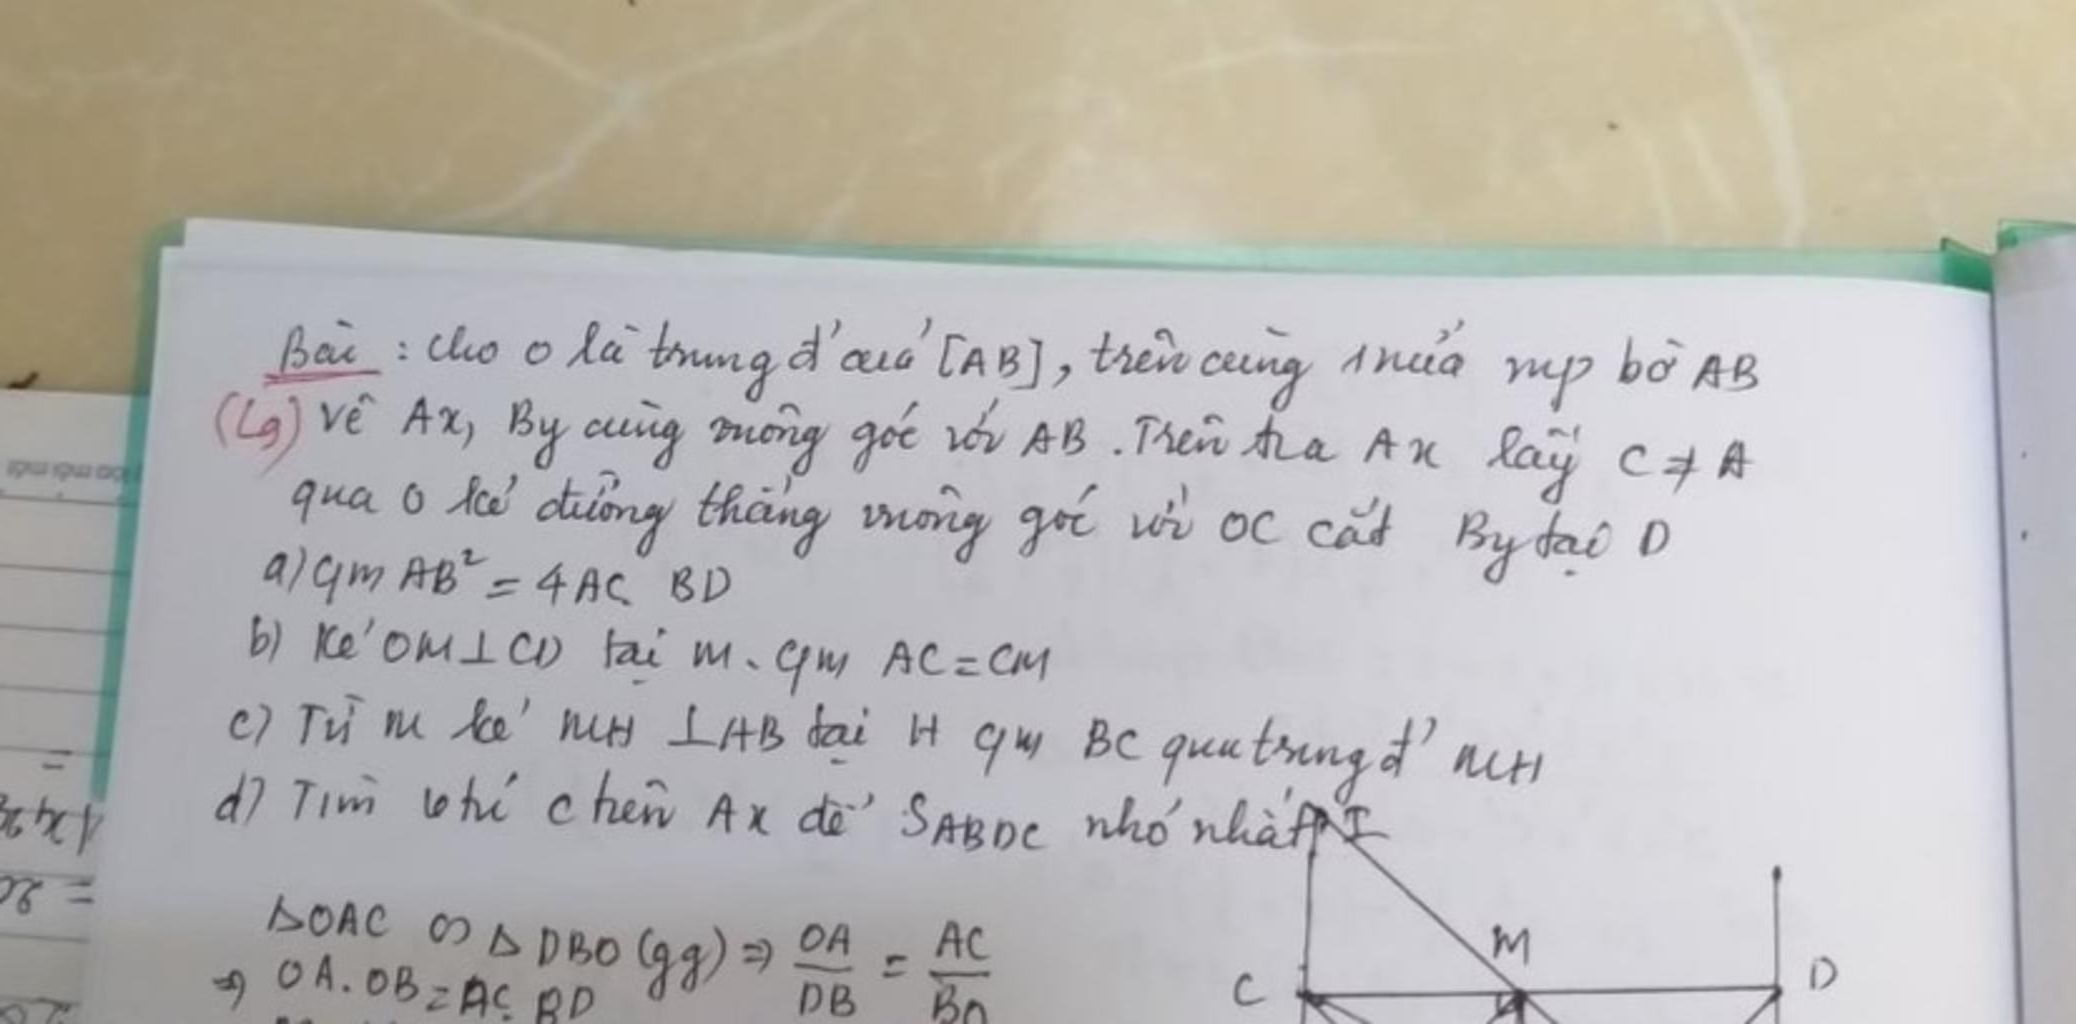 Bài : cho O là trung đ' của [AB], trên cùng 1 nửa mp bờ AB
(Lg) vẽ Ax, By cùng vuông góc với AB. Trên tia Ax lấy C ≠ A
qua O kẻ đường thẳng vuông góc với OC cắt By tại D
a) CM AB² = 4AC. BD
b) Kẻ OM ⊥ CD tại M. CM AC = CM
c) Từ M kẻ MH ⊥ AB tại H CM BC qua trung đ' MH
d) Tìm vtrí C trên Ax để S_ABDC nhỏ nhất
I
ΔOAC ∽ ΔDBO (gg) ⇒ OA/DB = AC/BO
⇒ OA. OB = AC. BD
M
C
D